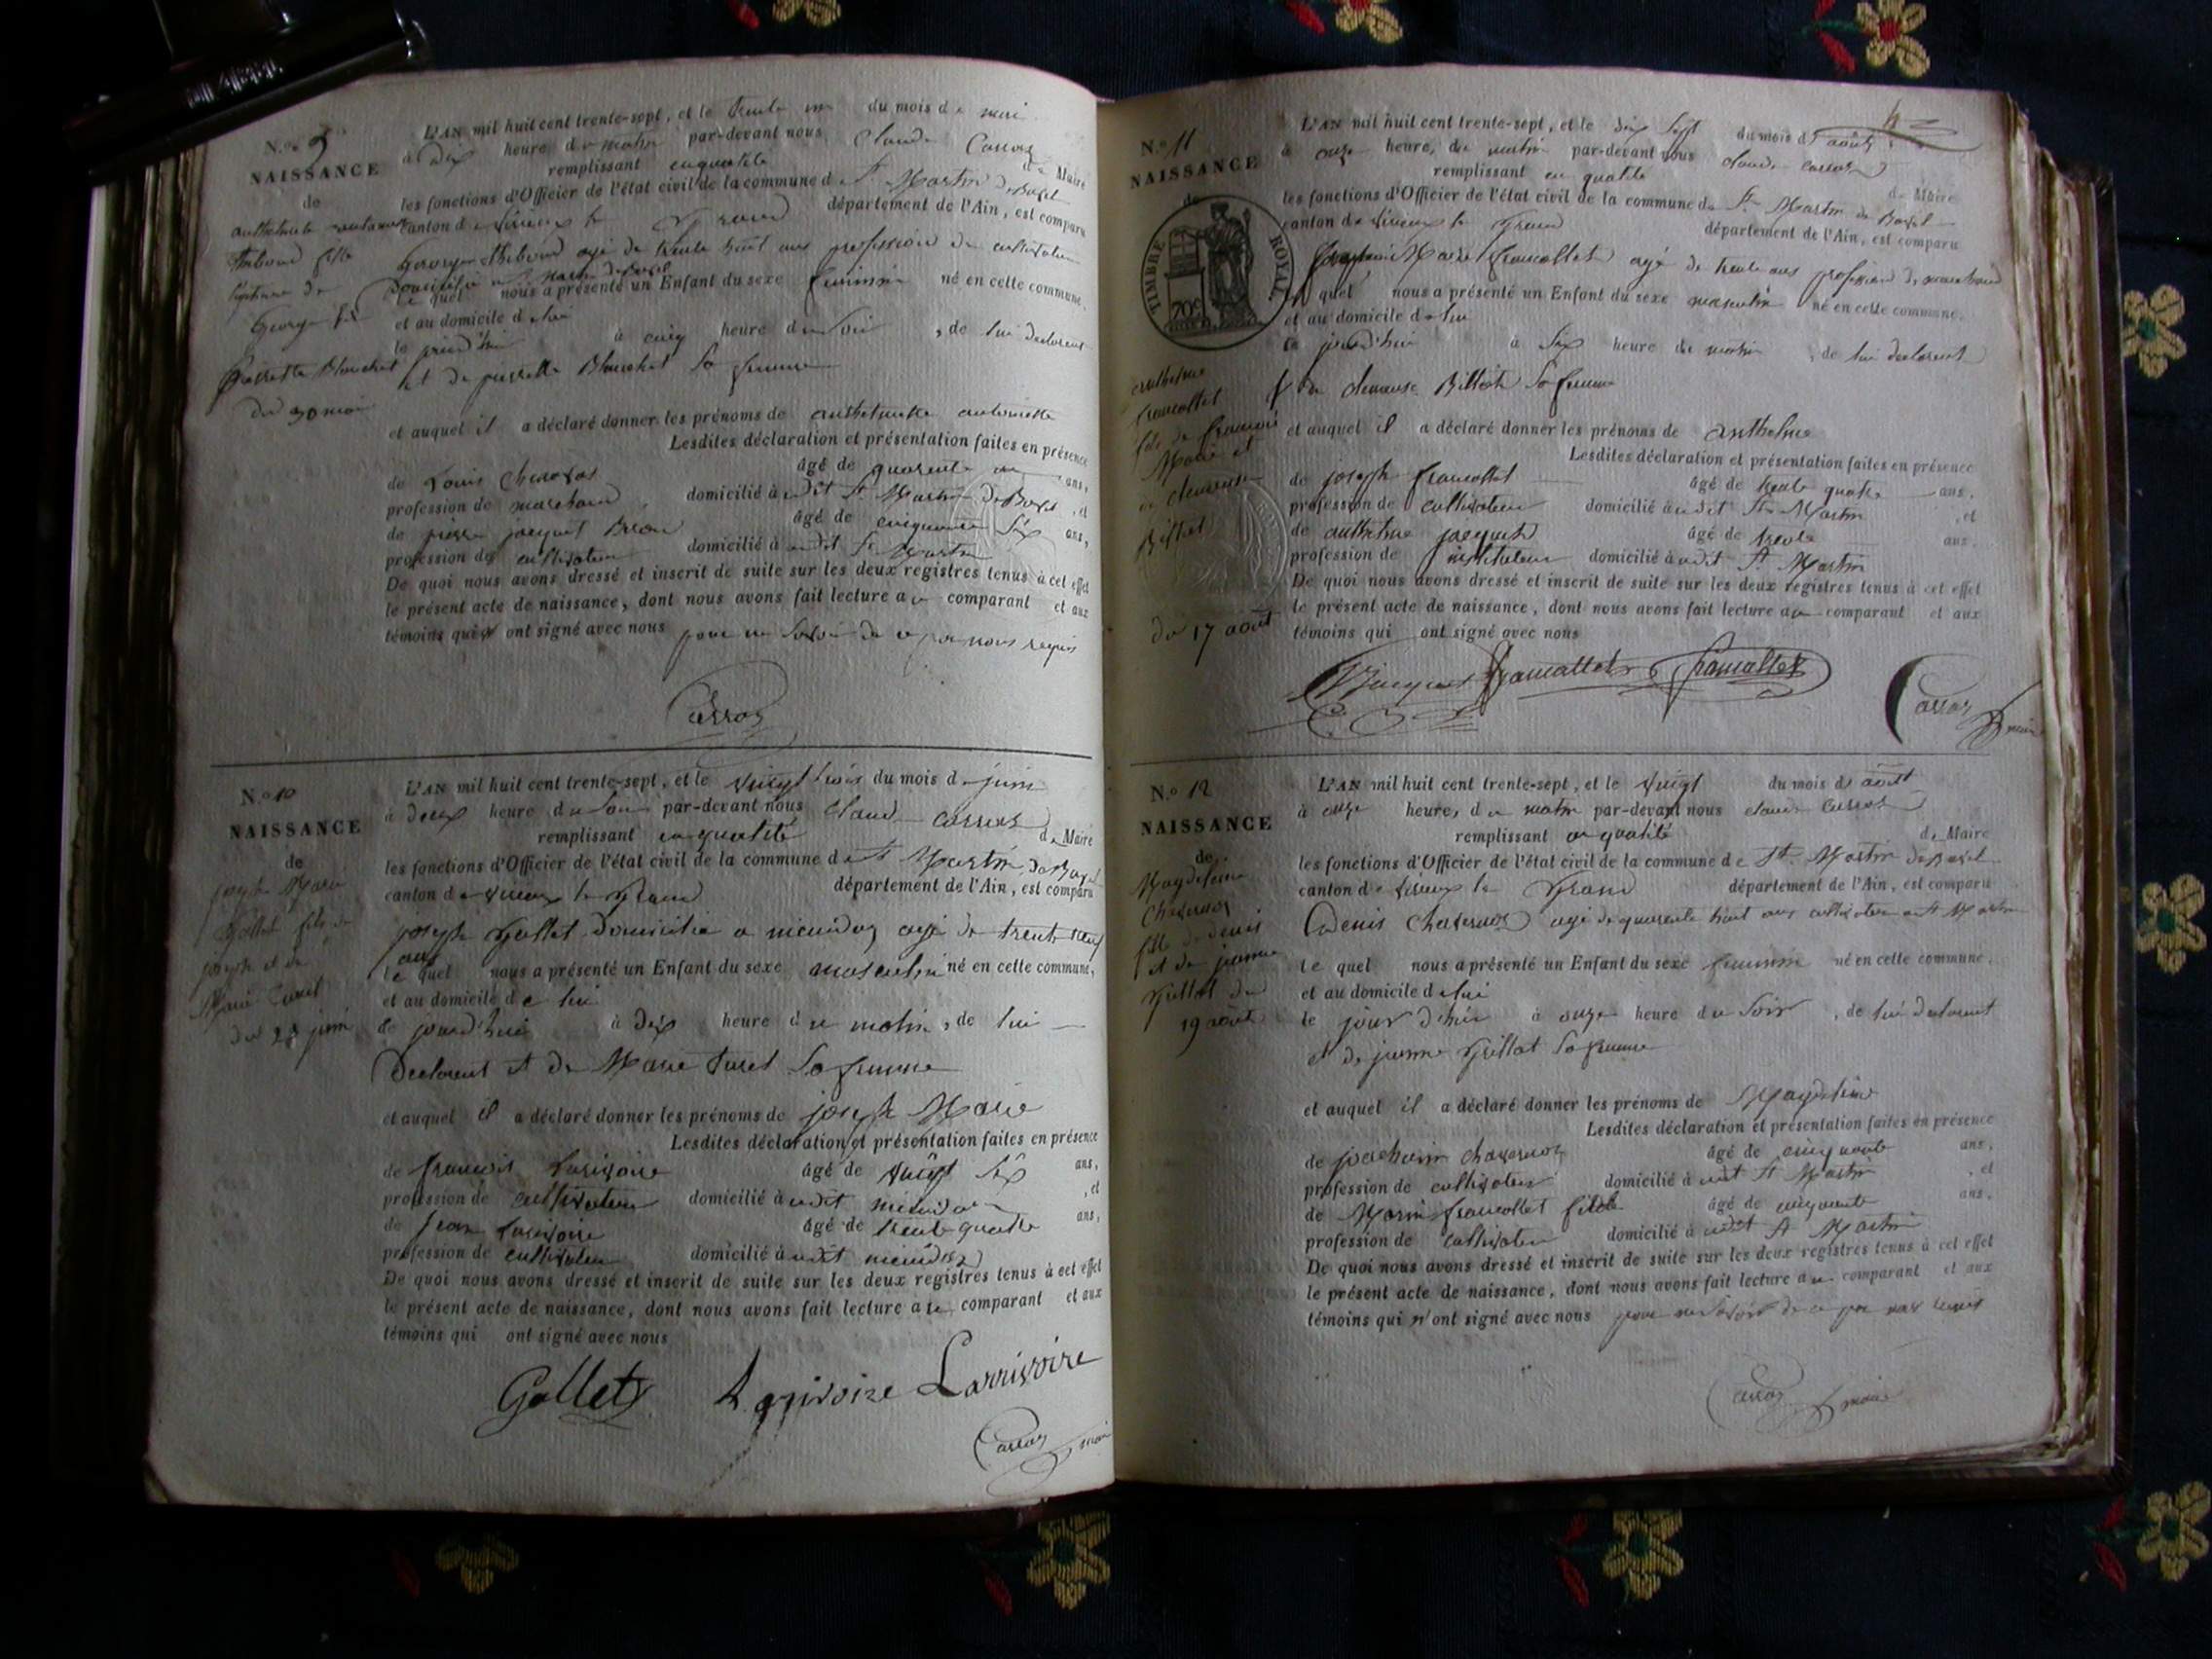 N.º 9
NAISSANCE
de
L'AN mil huit cent trente-sept, et le trente un du mois de mai
à dix heure, du matin par-devant nous Claude Carroz
remplissant en qualité de Maire
les fonctions d'Officier de l'état civil de la commune de St Martin de Bavel
canton de virieux le Grand département de l'Ain, est comparu
George thiboud agé de trente huit ans profession de cultivateur
domicilié a St Martin de Bavel
le quel nous a présenté un Enfant du sexe feminin né en cette commune,
et au domicile de lui
à cinq heure du soir, de lui declarant
et de pierrette Blanchet sa femme
du 30 mai
et auquel il a déclaré donner les prénoms de anthelmette antoinette
Lesdites déclaration et présentation faites en présence
de Louis âgé de quarente ans,
profession de marchand domicilié à udit St Martin de Bavel, et
de pierre jacquet âgé de cinquante six ans,
profession de cultivateur domicilié à udit St Martin
De quoi nous avons dressé et inscrit de suite sur les deux registres tenus à cet effet
le présent acte de naissance, dont nous avons fait lecture au comparant et aux
témoins qui ont signé avec nous pour ne savoir de ce par nous requis
Carroz
N.º 10
NAISSANCE
de
joseph Marie
Gollet fils de
joseph et de
Marie turel
du 23 juin
L'AN mil huit cent trente-sept, et le vingt trois du mois de juin
à deux heure du soir par-devant nous Claude Carroz
remplissant en qualité de Maire
les fonctions d'Officier de l'état civil de la commune de St Martin de Bavel
canton de virieux le Grand département de l'Ain, est comparu
joseph Gollet domicilié a agé de trente neuf
ans
le quel nous a présenté un Enfant du sexe masculin né en cette commune,
et au domicile de lui
le jourd'hui à dix heure du matin, de lui
declarant et de Marie turel sa femme
et auquel il a déclaré donner les prénoms de joseph Marie
Lesdites déclaration et présentation faites en présence
de francois Larivoire âgé de vingt six ans,
profession de cultivateur domicilié à udit, et
de jean Larivoire âgé de trente quatre ans,
profession de cultivateur domicilié à udit
De quoi nous avons dressé et inscrit de suite sur les deux registres tenus à cet effet
le présent acte de naissance, dont nous avons fait lecture au comparant et aux
témoins qui ont signé avec nous
Gollet Larrivoire
Carroz maire
4
N.º 11
NAISSANCE
de
TIMBRE ROYAL
70c
anthelme
francollet
fils de francois
Marie et
de clemence
Billiet
du 17 août
L'AN mil huit cent trente-sept, et le dix sept du mois d'août
à onze heure, du matin par-devant nous claude carroz
remplissant en qualité de Maire
les fonctions d'Officier de l'état civil de la commune de St Martin de Bavel
canton de virieux le Grand département de l'Ain, est comparu
Marie francollet agé de trente ans profession de marchand
le quel nous a présenté un Enfant du sexe masculin né en cette commune,
et au domicile de lui
le jourd'hui à six heure du matin, de lui declarant
et de clemence sa femme
et auquel il a déclaré donner les prénoms de anthelme
Lesdites déclaration et présentation faites en présence
de joseph francollet âgé de trente quatre ans,
profession de cultivateur domicilié à udit St Martin, et
de anthelme jacquet âgé de trente ans,
profession de instituteur domicilié à udit St Martin
De quoi nous avons dressé et inscrit de suite sur les deux registres tenus à cet effet
le présent acte de naissance, dont nous avons fait lecture au comparant et aux
témoins qui ont signé avec nous
Jacquet francollet francollet
Carroz maire
N.º 12
NAISSANCE
de
Magdeleine
Chavernoz
fille de denis
et de jeanne
Grillot du
19 août
L'AN mil huit cent trente-sept, et le vingt du mois de août
à onze heure, du matin par-devant nous claude Carroz
remplissant en qualité de Maire
les fonctions d'Officier de l'état civil de la commune de St Martin de Bavel
canton de virieux le Grand département de l'Ain, est comparu
Denis Chavernoz agé de quarente huit ans cultivateur a St Martin
le quel nous a présenté un Enfant du sexe feminin né en cette commune,
et au domicile de lui
le jour d'hier à onze heure du soir, de lui declarant
et de jeanne Grillot sa femme
et auquel il a déclaré donner les prénoms de Magdeleine
Lesdites déclaration et présentation faites en présence
de joachim chavernoz âgé de cinquante ans,
profession de cultivateur domicilié à udit St Martin, et
de Marin francollet âgé de cinquante ans,
profession de cultivateur domicilié à udit St Martin
De quoi nous avons dressé et inscrit de suite sur les deux registres tenus à cet effet
le présent acte de naissance, dont nous avons fait lecture au comparant et aux
témoins qui n'ont signé avec nous pour ne savoir de ce par nous requis
Carroz maire